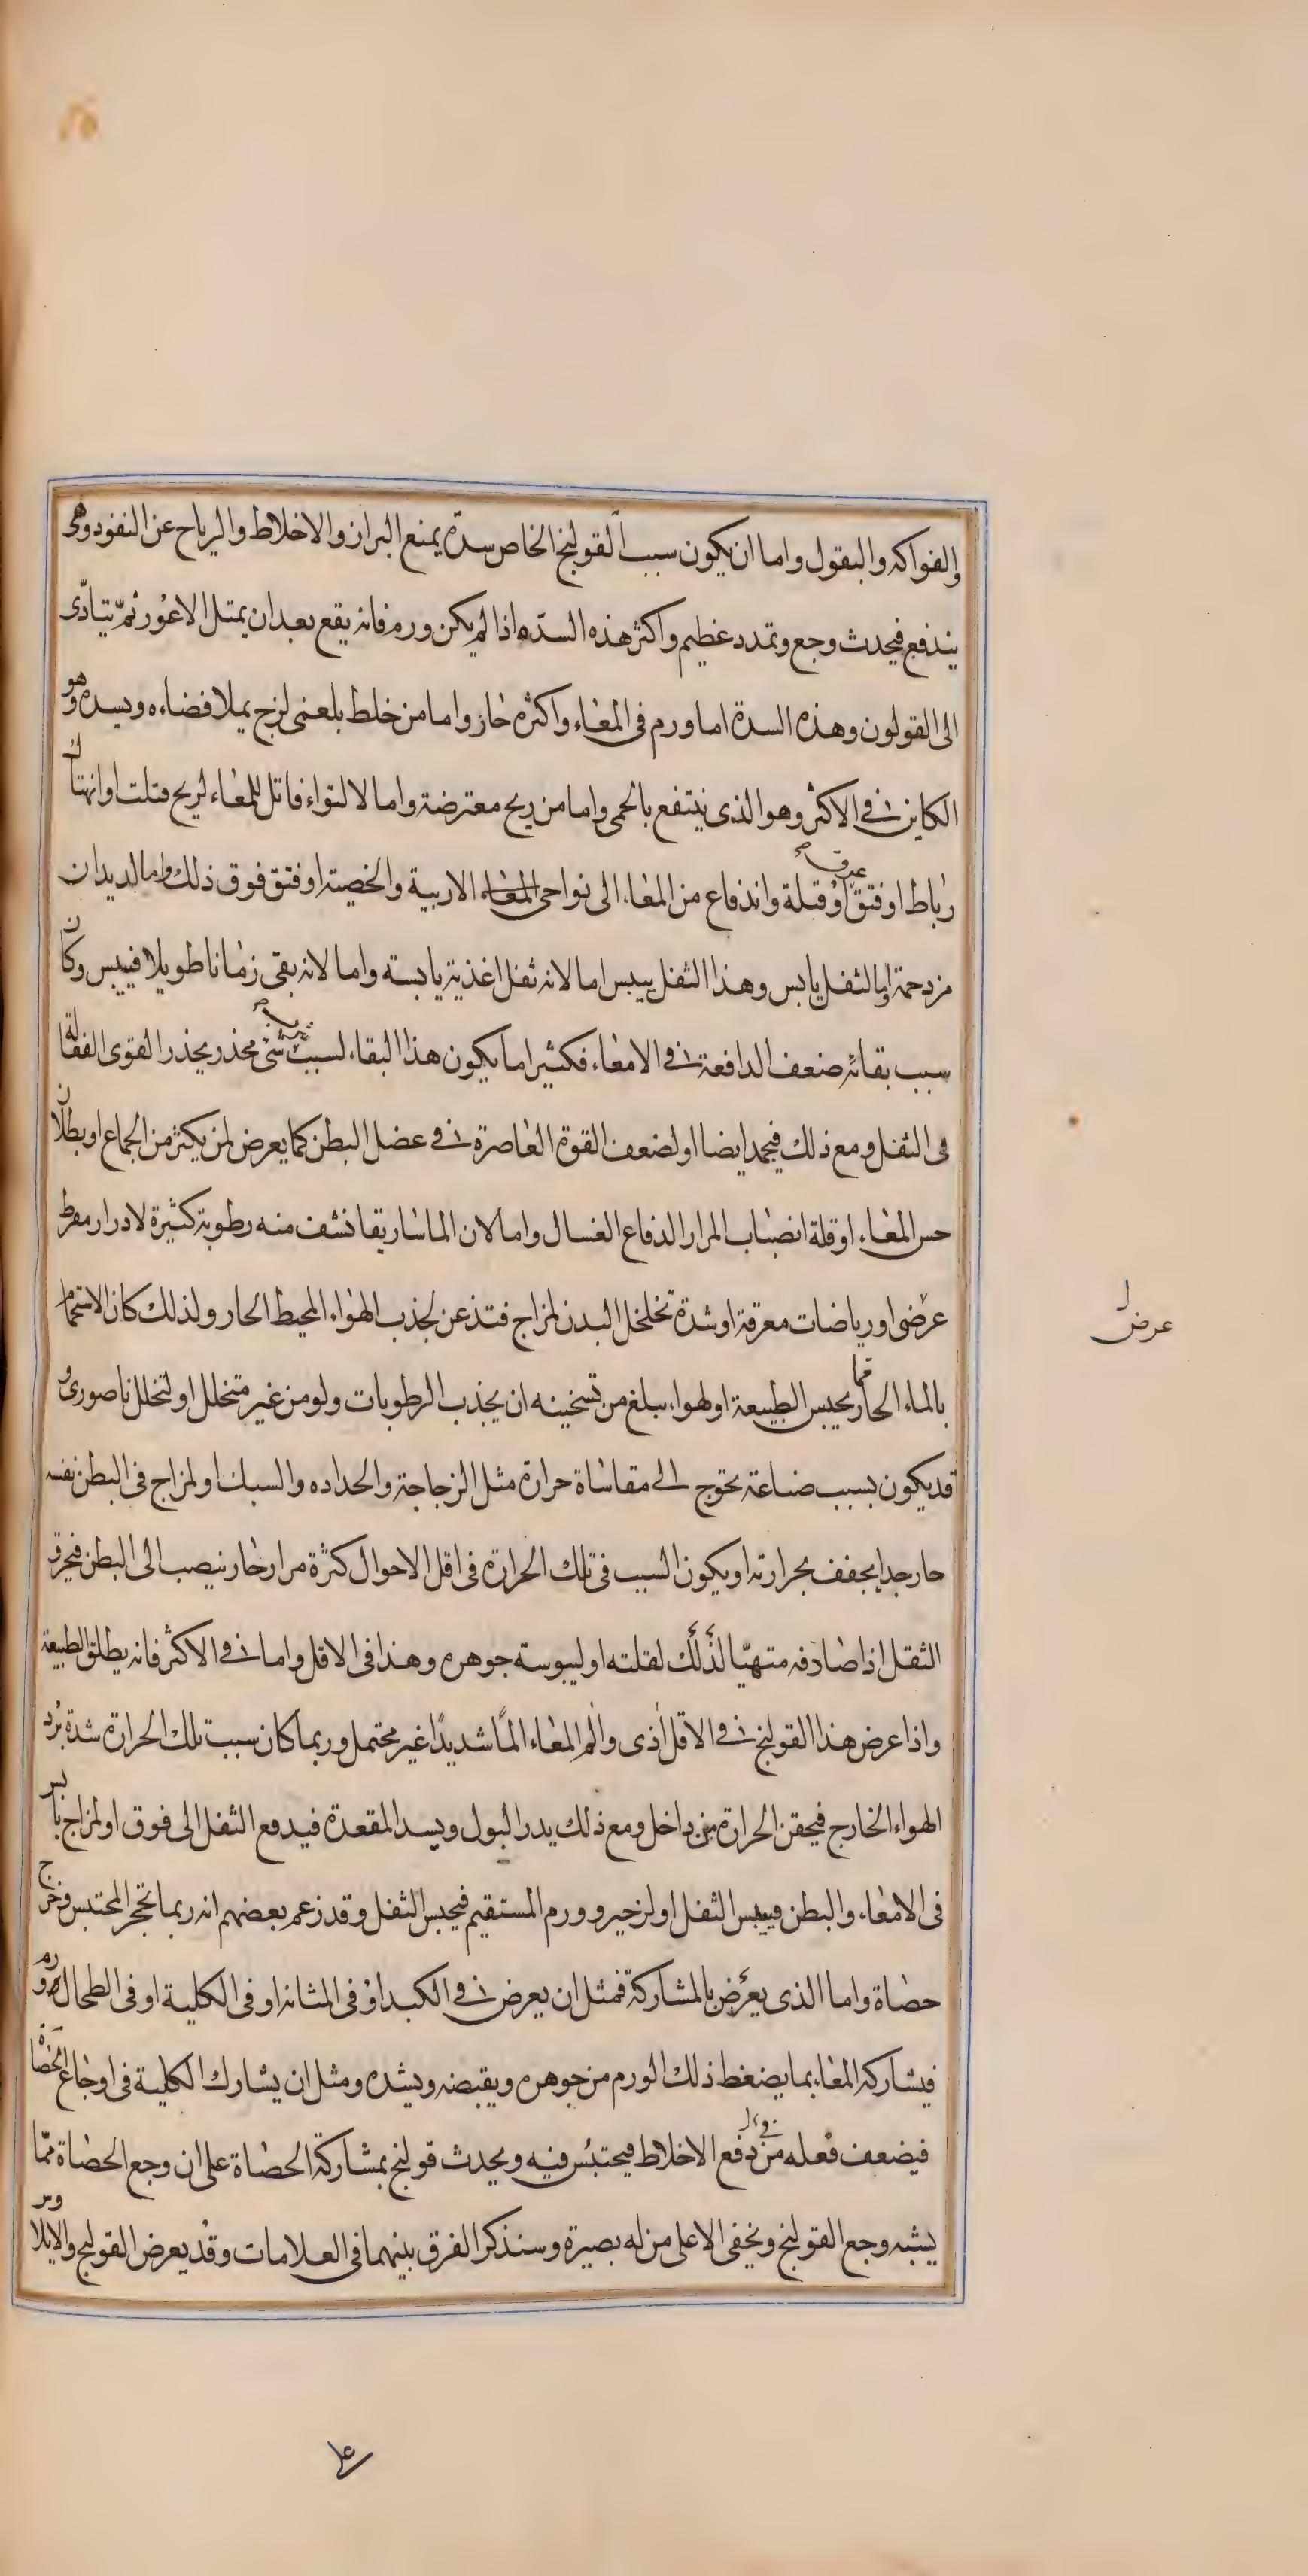 والفواكه والبقول واما ان يكون سبب القولنج الخاص سدة يمنع البراز والاخلاط والرياح عن النفود وهى
يندفع فيحدث وجع وتمدد عظيم واكثر هذه السده اذا لم يكن ورم فانه يقع بعد ان يمتلى الاعور ثم يتادى
الى القولون وهذه السدة اما ورم فى المعاء واكثره حار واما من خلط بلغمى لزج يملا فضاءه ويسده وهو
الكاين فى الاكثر وهو الذى ينتفع بالحمى واما من ريح معترضة واما لالتواء فاتل للمعاء لريح فتلت او انهتاك
رباط او فتق او قتلة واندفاع من المعاء الى نواحى الاربية والخصيته او فتق فوق ذلك واما لديدان
مزدحمة واما لثفل يابس وهذا الثفل ييبس اما لانه ثفل اغذية يابسته واما لانه بقى زمانا طويلا فييبس وكان
سبب بقائه ضعف الدافعة فى الامعاء فكثيرا ما يكون هذا البقاء لسبب شئ مخدر يخدر القوى الفعالة
فى الثفل ومع ذلك فيجمد ايضا او لضعف القوة العاصرة فى عضل البطن كما يعرض لمن يكثر من الجماع او بطلان
حس المعاء او قلة انصباب المرار الدفاع الغسال واما لان الماساريقا نشف منه رطوبة كثيرة لادرار مفرط
عرضى او رياضات معرقة او شدة تخلخل البدن لمزاج فتذعن لجذب الهواء المحيط الحار ولذلك كان الاستحمام
بالماء الحار مما يحبس الطبيعة او لهواء يبلغ من تسخينه ان يجذب الرطوبات ولو من غير متخلل او لتخلل ناصورى و
قد يكون بسبب صناعة يحوج الى مقاساة حرارة مثل الزجاجة والحداده والسبك او لمزاج فى البطن نفسه
حار جدا يجفف بحرارته او يكون السبب فى تلك الحرارة فى اقل الاحوال كثرة مرار حار ينصب الى البطن فيحرق
الثقل اذا صادفه متهيّا لذلك لقلته او ليبوسته جوهره وهذا فى الاقل واما فى الاكثر فانه يطلق الطبيعة
واذا عرض هذا القولنج فى الاقل أذى وألم المعاء المًا شديدًا غير محتمل وربما كان سبب تلك الحرارة شدة برد
الهواء الخارج فيحقن الحرارة من داخل ومع ذلك يدر البول ويسد المقعدة فيدفع الثفل الى فوق او لمزاج يابس
فى الامعاء والبطن فييبس الثفل او لزحير وورم المستقيم فيحبس الثفل وقد زعم بعضهم انه ربما تحجر المحتبس وخرج
حصاة واما الذى يعرض بالمشاركة فمثل ان يعرض فى الكبد او فى المثانه او فى الكلية او فى الطحال ورم
فيشاركه المعاء بما يضغط ذلك الورم من جوهره ويقبضه ويشده ومثل ان يشارك الكلية فى اوجاع الحصاة
فيضعف فعله من دفع الاخلاط فيحتبس فيه ويحدث قولنج بمشاركة الحصاة على ان وجع الحصاة ممّا
يشبه وجع القولنج ويخفى الا على من له بصيرة وسنذكر الفرق بينهما فى العلامات وقد يعرض القولنج والايلاوس
عرض